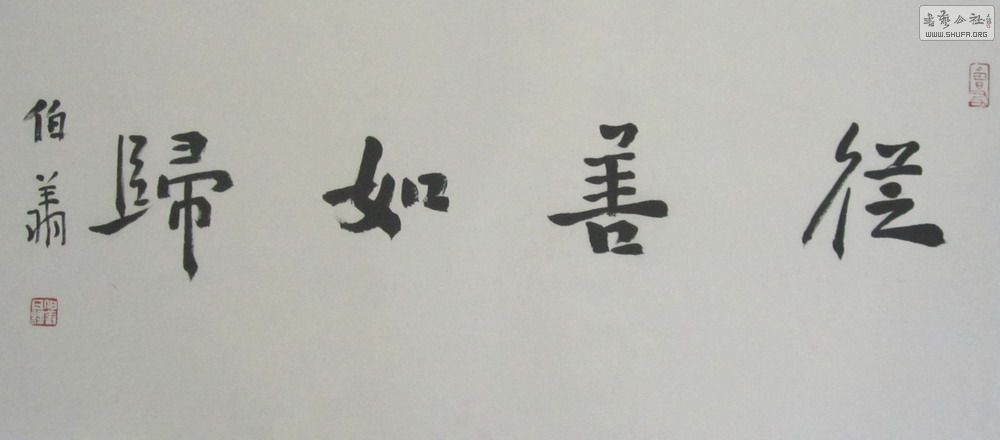 從善如歸
伯翔
書藝公社
WWW.SHUFA.ORG